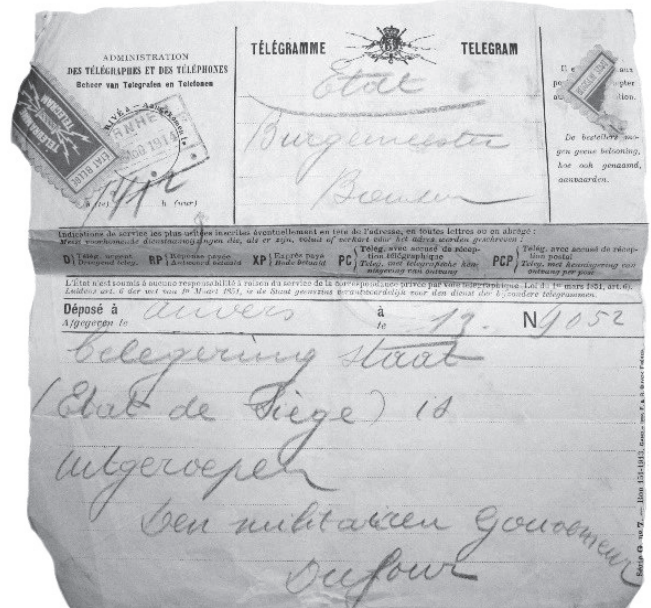 ADMINISTRATION
DES TÉLÉGRAPHES ET DES TÉLÉPHONES
Beheer van Telegrafen en Telefonen
TÉLÉGRAMME
TELEGRAM
Etat
Burgemeester
De bestellers mo-
gen geene belooning,
hoe ook genaamd,
aanvaarden.
(uur)
Indications de service les plus usitées inscrites éventuellement en tête de l'adresse, en toutes lettres ou en abrégé :
Meest voorkomende dienstaanwijzingen die, als er zijn, voluit of verkort vóór het adres worden geschreven :
D) Télég. urgent. Dringend teleg.
RP) Réponse payée Antwoord betaald
XP) Exprès payé Bode betaald
PC) Télég. avec accusé de réception télégraphique Teleg. met telegrafische kennisgeving van ontvang
PCP) Télég. avec accusé de réception postal Teleg. met kennisgeving van ontvang per post
L'État n'est soumis à aucune responsabilité à raison du service de la correspondance privée par voie télégraphique. Loi du 1er mars 1851, art. 6.
Luidens art. 6 der wet van 1n Maart 1851, is de Staat geenszins verantwoordelijk voor den dienst der bijzondere telegrammen.
Déposé à Anvers à 13. N 9052
Afgegeven te te
belegering staat
(Etat de Siège) is
uitgeroepen
Den militairen Gouverneur
Dufour